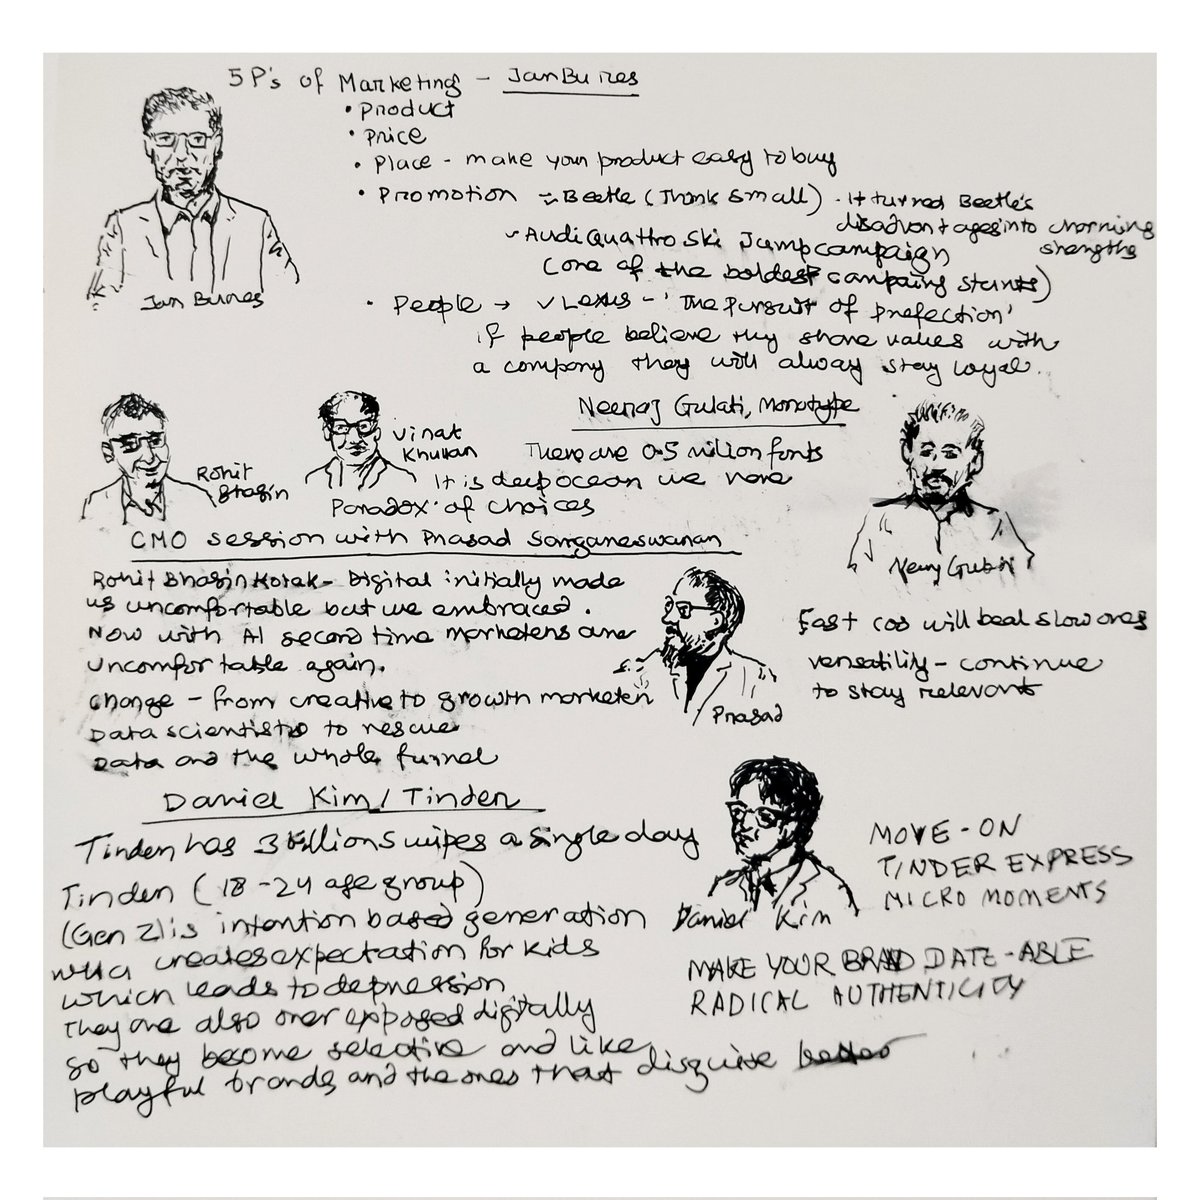 5P's of Marketing - Jan Bures
• Product
• Price
• Place - make your product easy to buy
• Promotion - Beetle (Think Small) - It turned Beetle's
disadvantages into charming
strengths
Audi Quattro Ski Jump campaign
(one of the boldest campaing stunts)
Jan Bures
• People → ✓ Lexus - 'The Pursuit of Prefection'
if people believe they share values with
a company they will always stay loyal.
Neeraj Gulati, Monotype
Rohit
Bhasin
Vinat
Khullan
There are 0.5 million fonts
It is deep ocean we have
Paradox of choices
CMO session with Prasad Sanganeswanan
Neeraj Gulati
Rohit Bhasin Kotak - Digital initially made
us uncomfortable but we embraced.
Now with AI second time marketers are
uncomfortable again.
change - from creative to growth marketer
Data scientists to rescue
Data and the whole funnel
Prasad
Fast cos will beat slow ones
versatility - continue
to stay relevant
Daniel Kim / Tinder
Tinder has 3 billion swipes a single day
Tinder (18-24 age group)
(Gen Z) is intention based generation
creates expectation for kids
which leads to depression
They are also over exposed digitally
so they become selective and like
playful brands and the ones that disguise
Daniel Kim
MOVE-ON
TINDER EXPRESS
MICRO MOMENTS
MAKE YOUR BRAND DATE-ABLE
RADICAL AUTHENTICITY